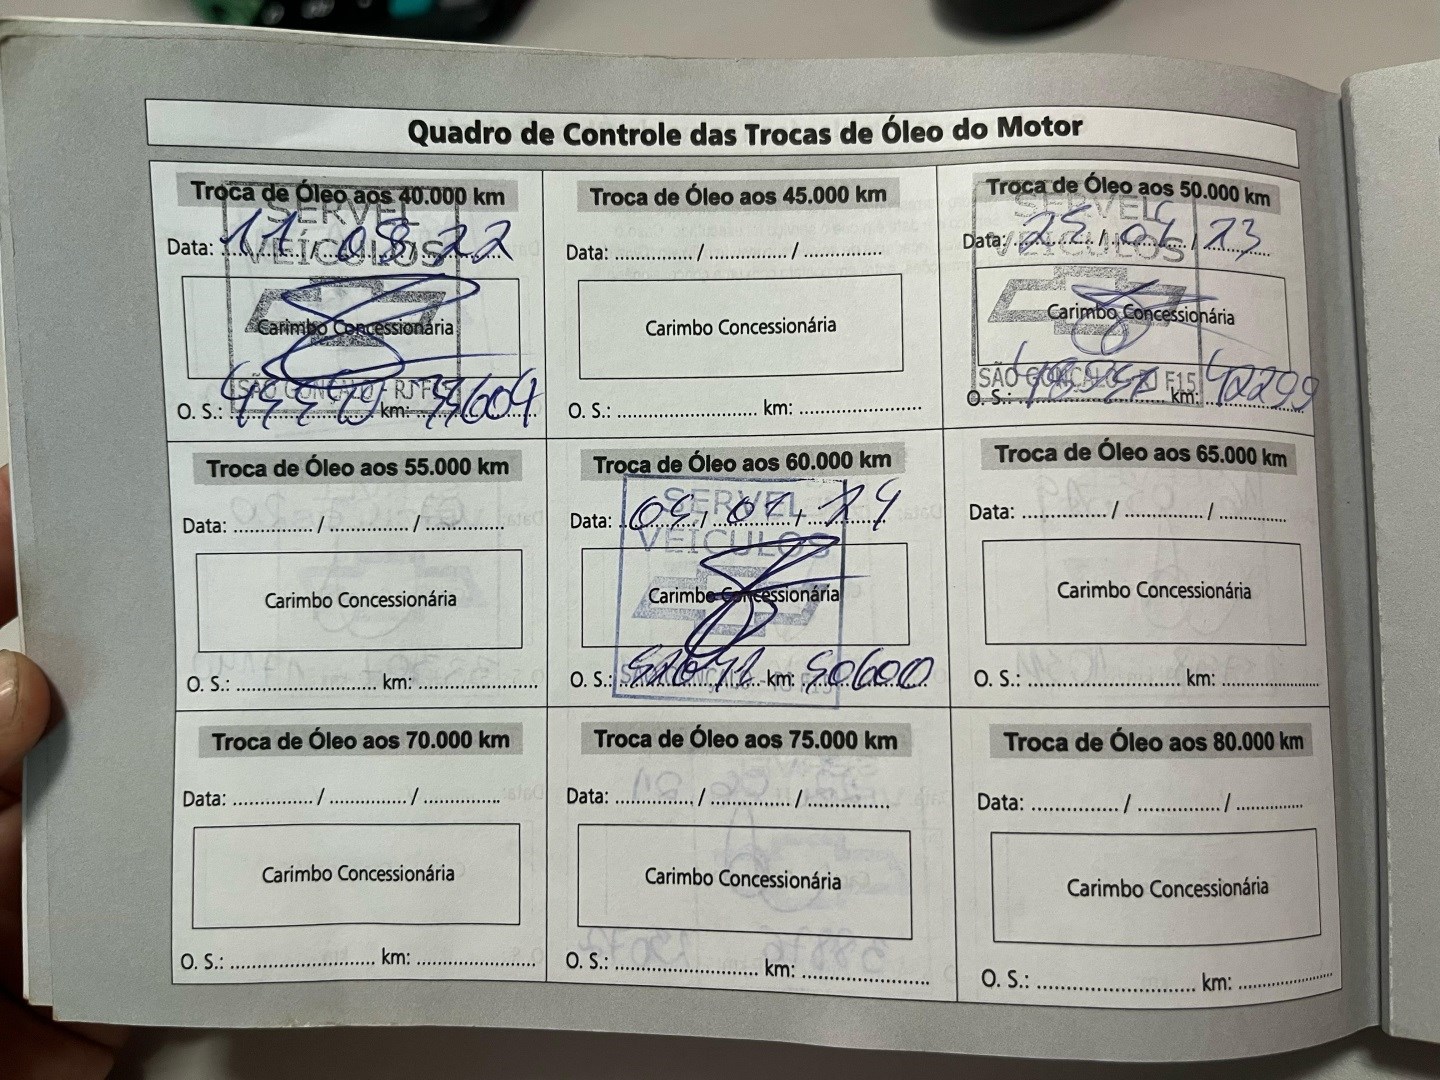 Quadro de Controle das Trocas de Óleo do Motor
Troca de Óleo aos 40.000 km
SERVEL
VEÍCULOS
Data: 11 / 08 / 22
Carimbo Concessionária
SÃO GONÇALO - RJ F15
O. S.: km:
Troca de Óleo aos 45.000 km
Data: ............. / ............. / .............
Carimbo Concessionária
O. S.: ........................ km: .....................
Troca de Óleo aos 50.000 km
SERVEL
VEÍCULOS
Data: / / 23
Carimbo Concessionária
SÃO GONÇALO - RJ F15
O. S.: km: 42299
Troca de Óleo aos 55.000 km
Data: ............. / ............. / .............
Carimbo Concessionária
O. S.: ........................ km: .....................
Troca de Óleo aos 60.000 km
SERVEL
VEÍCULOS
Data: 04 / 01 / 24
Carimbo Concessionária
SÃO GONÇALO - RJ F15
O. S.: km: 50600
Troca de Óleo aos 65.000 km
Data: ............. / ............. / .............
Carimbo Concessionária
O. S.: ........................ km: .....................
Troca de Óleo aos 70.000 km
Data: ............. / ............. / .............
Carimbo Concessionária
O. S.: ........................ km: .....................
Troca de Óleo aos 75.000 km
Data: ............. / ............. / .............
Carimbo Concessionária
O. S.: ........................ km: .....................
Troca de Óleo aos 80.000 km
Data: ............. / ............. / .............
Carimbo Concessionária
O. S.: ........................ km: .....................